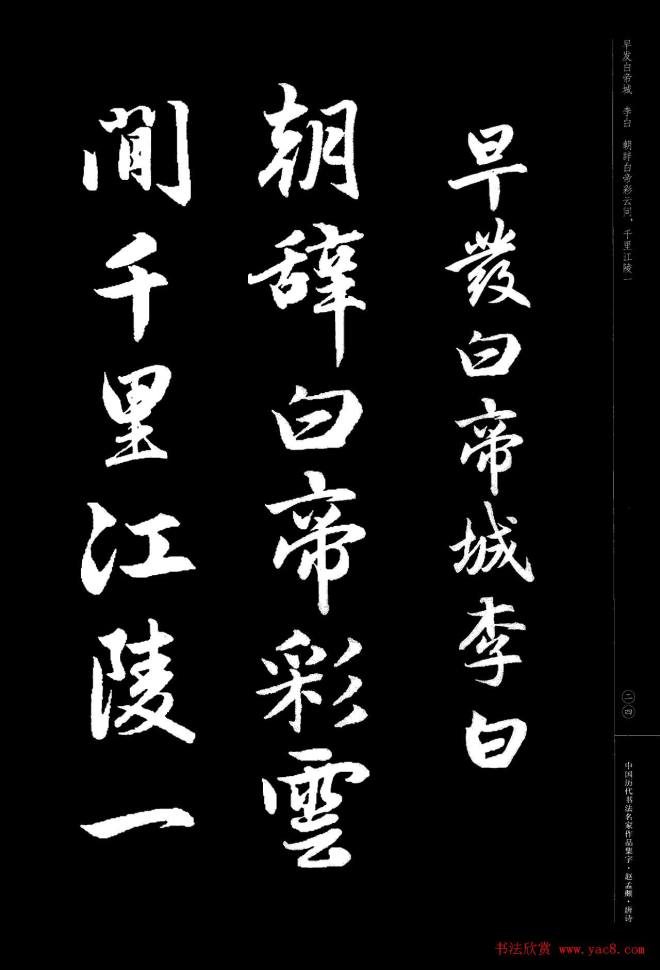 早發白帝城李白
朝辞白帝彩雲
間千里江陵一
早发白帝城 李白 朝辞白帝彩云间，千里江陵一
二四
中国历代书法名家作品集字·赵孟頫·唐诗
书法欣赏 www.yac8.com